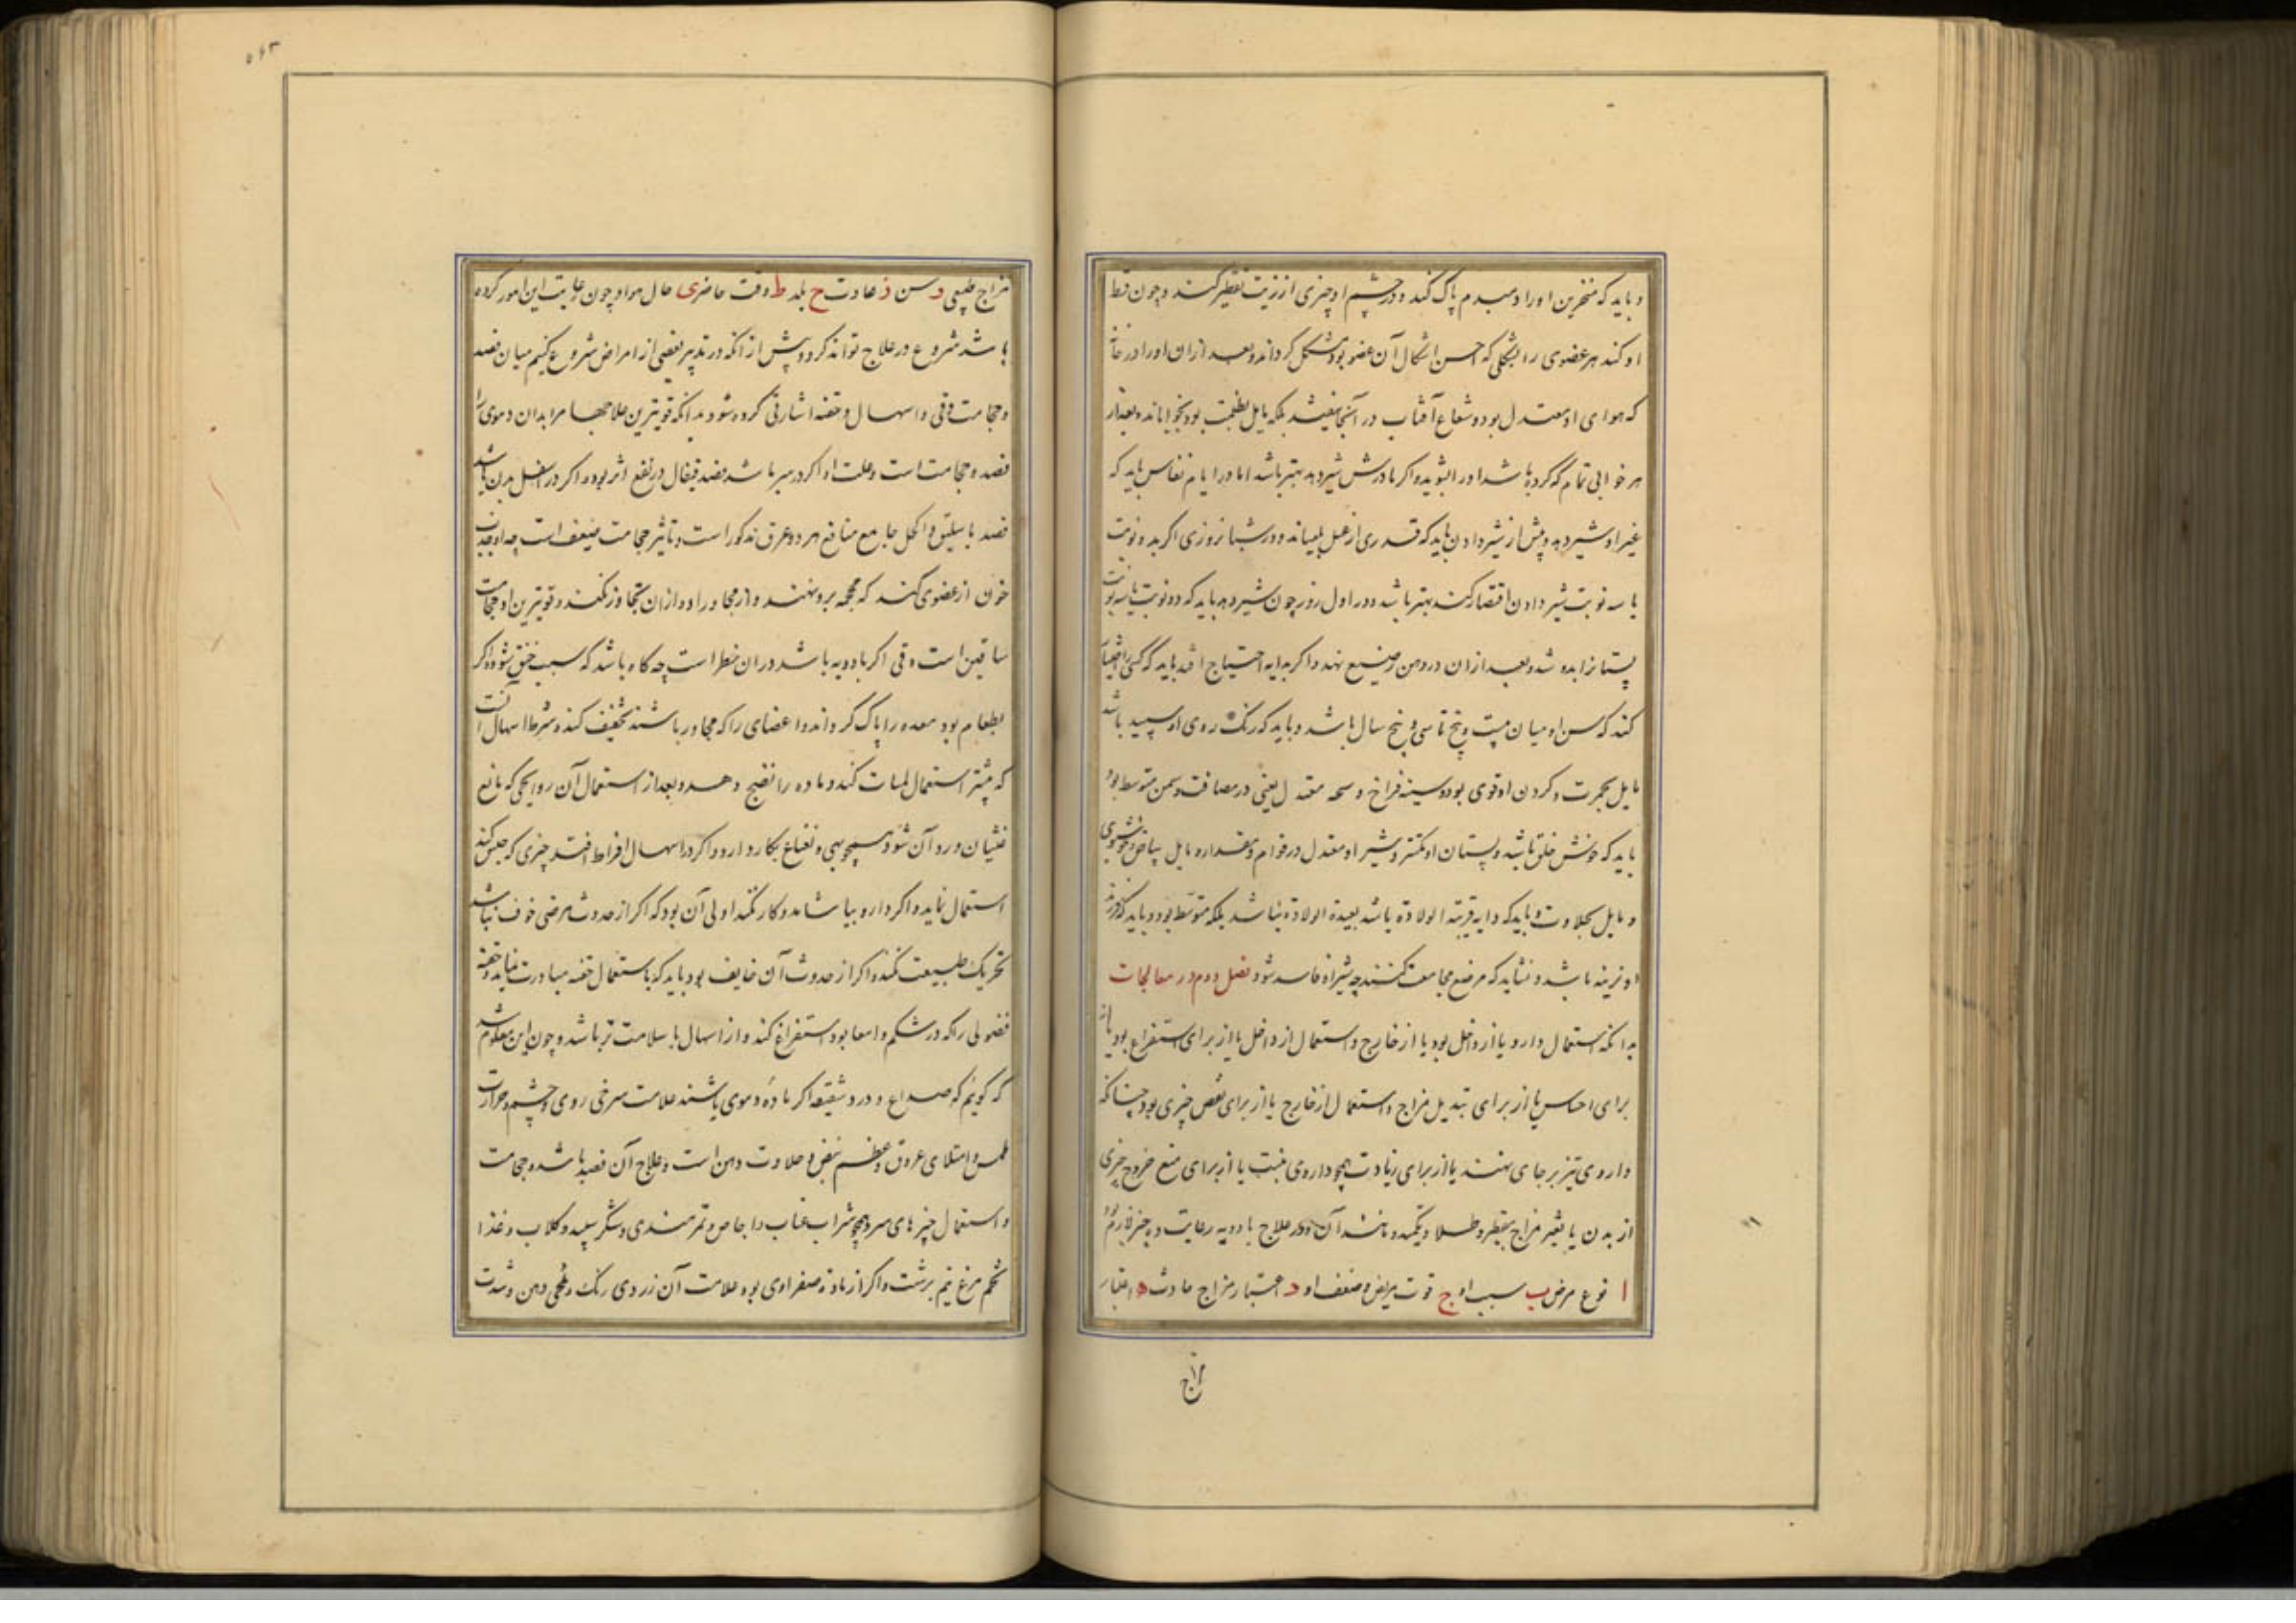 و باید که منخرین او را دمبدم پاک کند و در چشم او چیزی از زیت تقطیر کنند و چون قماط
او کند هر عضوی را بشکلی که احسن اشکال آن عضو بود مشکل گرداند و بعد از ان او را در خانه
که هوای او معتدل بود و شعاع آفتاب در آنجا نیفتد بلکه مایل بظلمت بود بخواباند و بعد از
هر خوابی تمام که کرده باشد او را بشوید و اگر مادرش شیر دهد بهتر باشد اما در ایام نفاس باید که
غیر او شیر دهد و پیش از شیر دادن باید که قدری از عسل بلیساند و در شبانروزی اگر بدو نوبت
یا سه نوبت شیر دادن اقتصار کنند بهتر باشد و در اول روز چون شیر دهد باید که دو نوبت یا سه نوبت
پستانرا بدوشد و بعد از ان در دهن رضیع نهد و اگر بدایه احتیاج افتد باید که کسی را اختیار
کند که سن او میان بیست و پنج تا سی و پنج سال باشد و باید که رنگ روی او سپید باشد
مایل بحمرت و گردن او قوی بود و سینه فراخ و سحنه معتدل یعنی در صلابت و سمن متوسط بود
باید که خوش خلق باشد و پستان او مکتنز و شیر او معتدل در قوام و مقدار و مایل ببیاض و خوشبوی
و مایل بحلاوت و باید که دایه قریبة الولادة یا بعیدة الولادة نباشد بلکه متوسط بود و باید که فرزند
او نرینه باشد و نشاید که مرضع مجامعت کنند چه شیر او فاسد شود فصل دوم در معالجات
بدانکه استعمال دارو یا از داخل بود یا از خارج و استعمال از داخل یا از برای استفراغ بود یا از
برای احتباس یا از برای تبدیل مزاج و استعمال از خارج یا از برای نقص چیزی بود چنانکه
داروی تیز بر جای نهند یا از برای زیادت همچو داروی منبت یا از برای منع خروج چیزی
از بدن یا تغییر مزاج بتقطیر و طلا و تکمید و مانند آن و در علاج بادویه رعایت ده چیز لازم بود
ا نوع مرض ب سبب او ج قوت مریض و ضعف او د اعتبار مزاج حادث ه اعتبار
مزاج
مزاج طبیعی و سن ز عادت ح بلد ط وقت حاضر ی حال هوا و چون رعایت این امور کرده
باشد شروع در علاج تواند کرد و پیش از آنکه در تدبیر بعضی از امراض شروع کنیم میان فصد
و حجامت و قی و اسهال و حقنه اشارتی کرده شود بدانکه قویترین علاجها مر ابدان دموی را
فصد و حجامت است و علت او اگر در سر باشد فصد قیفال در نفع اثر بود و اگر در اسفل بدن باشد
فصد باسلیق و اکحل جامع منافع هر دو عرق مذکور است و تاثیر حجامت ضعیف است چه او جذب
خون از عضوی کند که محجمه برو نهند و از مجاور او و از ان تجاوز نکند و قویترین او حجامت
ساقین است و قی اگر بادویه باشد در ان خطر است چه گاه باشد که سبب خنق شود و اگر
بطعام بود معده را پاک گرداند و اعضای را که مجاور باشند تخفیف کند و شرط اسهال آنست
که پیشتر استعمال ملینات کند و ماده را نضج دهد و بعد از استعمال آن روایحی که مانع
غثیان و رد آن شود همچو بهی و نعناع بکار دارد و اگر در اسهال افراط افتد چیزی که حبس کند
استعمال نماید و اگر دارو بیاشامد و کار نکند اولی آن بود که اگر از حدوث مرضی خوف نباشد
تحریک طبیعت نکند و اگر از حدوث آن خایف بود باید که باستعمال حقنه مبادرت نماید و حقنه
فضولی را که در شکم و امعا بود استفراغ کند و از اسهال با سلامت تر باشد و چون این معلوم شد
گوییم که صداع و درد شقیقه اگر ماده دموی باشند علامت سرخی روی و چشم و حرارت
ملمس و امتلای عروق و عظم نبض و حلاوت دهن است و علاج آن فصد باشد و حجامت
و استعمال چیزهای سرد همچو شراب عناب و اجاص و تمر هندی و شکر سپید و گلاب و غذا
تخم مرغ نیم برشت و اگر از ماده صفراوی بود علامت آن زردی رنگ و تلخی دهن و شدت